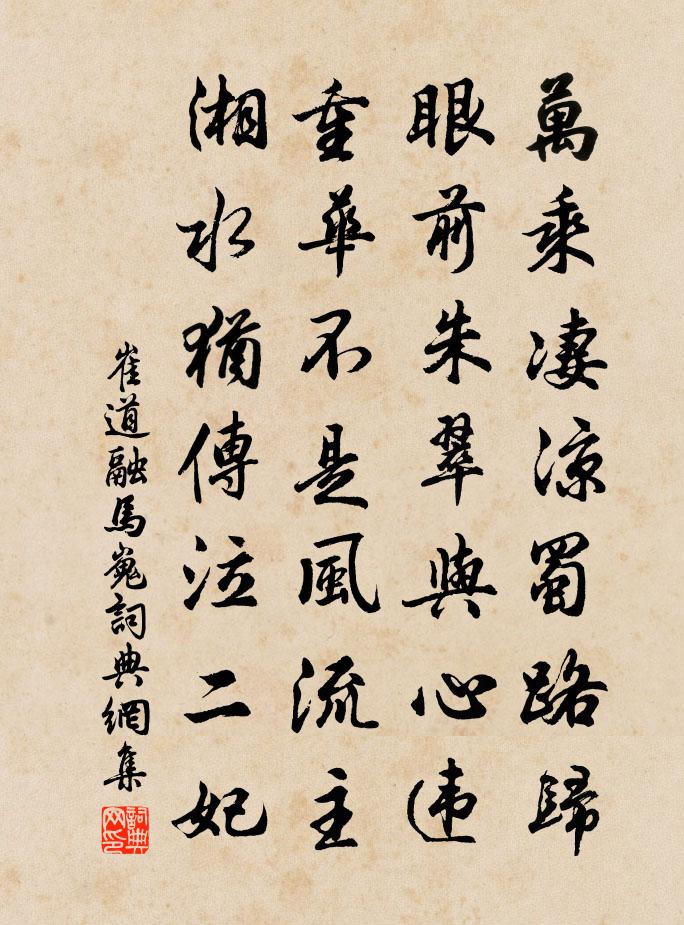 萬乘淒涼蜀路歸
眼前朱翠與心違
重華不是風流主
湘水猶傳泣二妃
崔道融馬嵬詞典網集
詞典网印